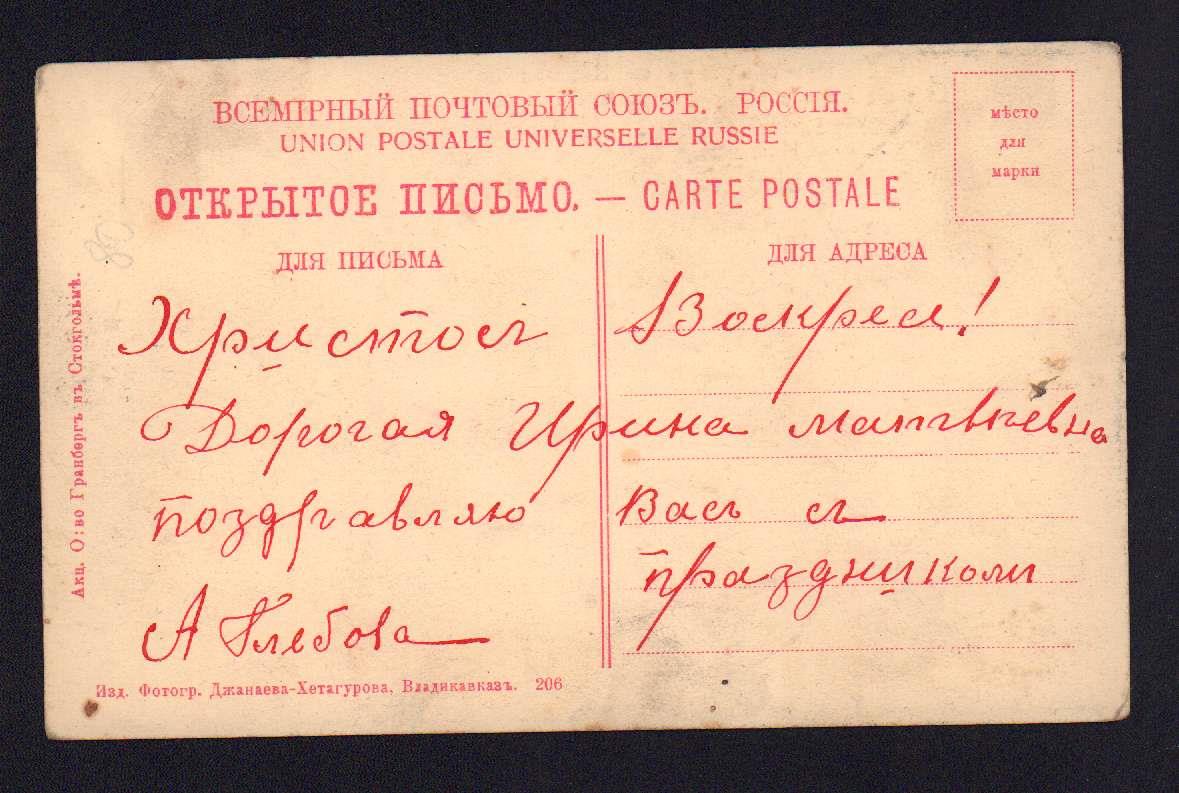 ВСЕМІРНЫЙ ПОЧТОВЫЙ СОЮЗЪ. РОССІЯ.
UNION POSTALE UNIVERSELLE RUSSIE
ОТКРЫТОЕ ПИСЬМО. — CARTE POSTALE
мѣсто
для
марки
ДЛЯ ПИСЬМА
ДЛЯ АДРЕСА
80
Христосъ Воскресе!
Дорогая Ирина Матвѣевна
поздравляю Васъ съ
праздникомъ
А Глебова
Акц. О:во Гранбергъ въ Стокгольмѣ.
Изд. Фотогр. Джанаева-Хетагурова, Владикавказъ. 206